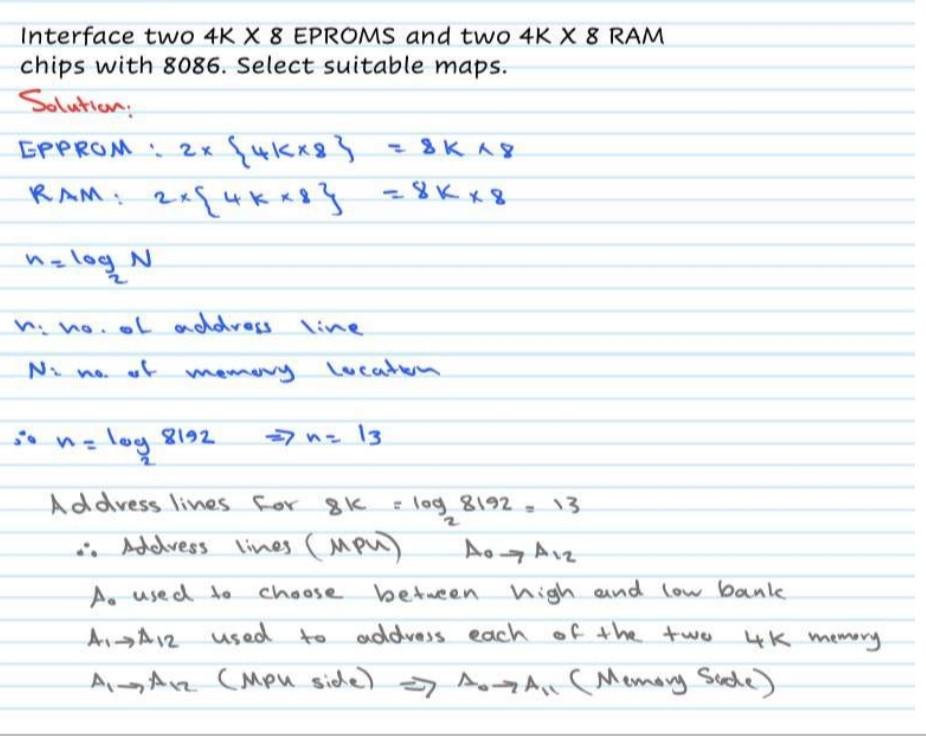 Interface two 4K X 8 EPROMS and two 4K X 8 RAM
chips with 8086. Select suitable maps.
Solution:
EPPROM : 2x {4K×8} = 8K × 8
RAM: 2×{4K×8} = 8K × 8
n = log₂ N
n: no. of address line
N: no. of memory location
∴ n = log₂ 8192 ⇒ n = 13
Address lines for 8K = log₂ 8192 = 13
∴ Address lines (MPU) A₀ → A₁₂
A₀ used to choose between high and low bank
A₁→A₁₂ used to address each of the two 4K memory
A₁→A₁₂ (MPU side) ⇒ A₀→A₁₁ (Memory Side)